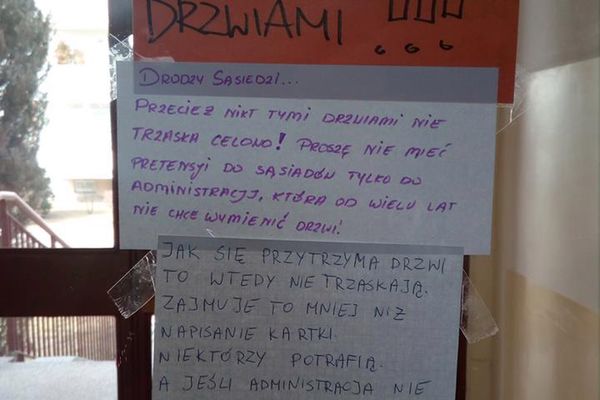 DRZWIAMI !!!
DRODZY SĄSIEDZI...
PRZECIEŻ NIKT TYMI DRZWIAMI NIE
TRZASKA CELOWO! PROSZĘ NIE MIEĆ
PRETENSJI DO SĄSIADÓW TYLKO DO
ADMINISTRACJI, KTÓRA OD WIELU LAT
NIE CHCE WYMIENIĆ DRZWI!
JAK SIĘ PRZYTRZYMA DRZWI
TO WTEDY NIE TRZASKAJĄ.
ZAJMUJE TO MNIEJ NIŻ
NAPISANIE KARTKI.
NIEKTÓRZY POTRAFIĄ.
A JEŚLI ADMINISTRACJA NIE